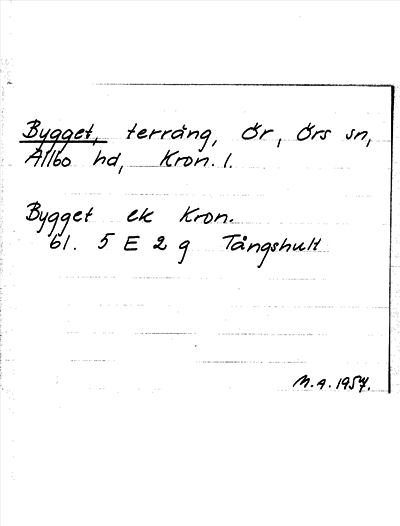 Bygget, terräng, Ör, Örs sn,
Allbo hd, Kron. l.
Bygget ek Kron.
bl. 5 E 2 g Tångshult
M.A. 1957.